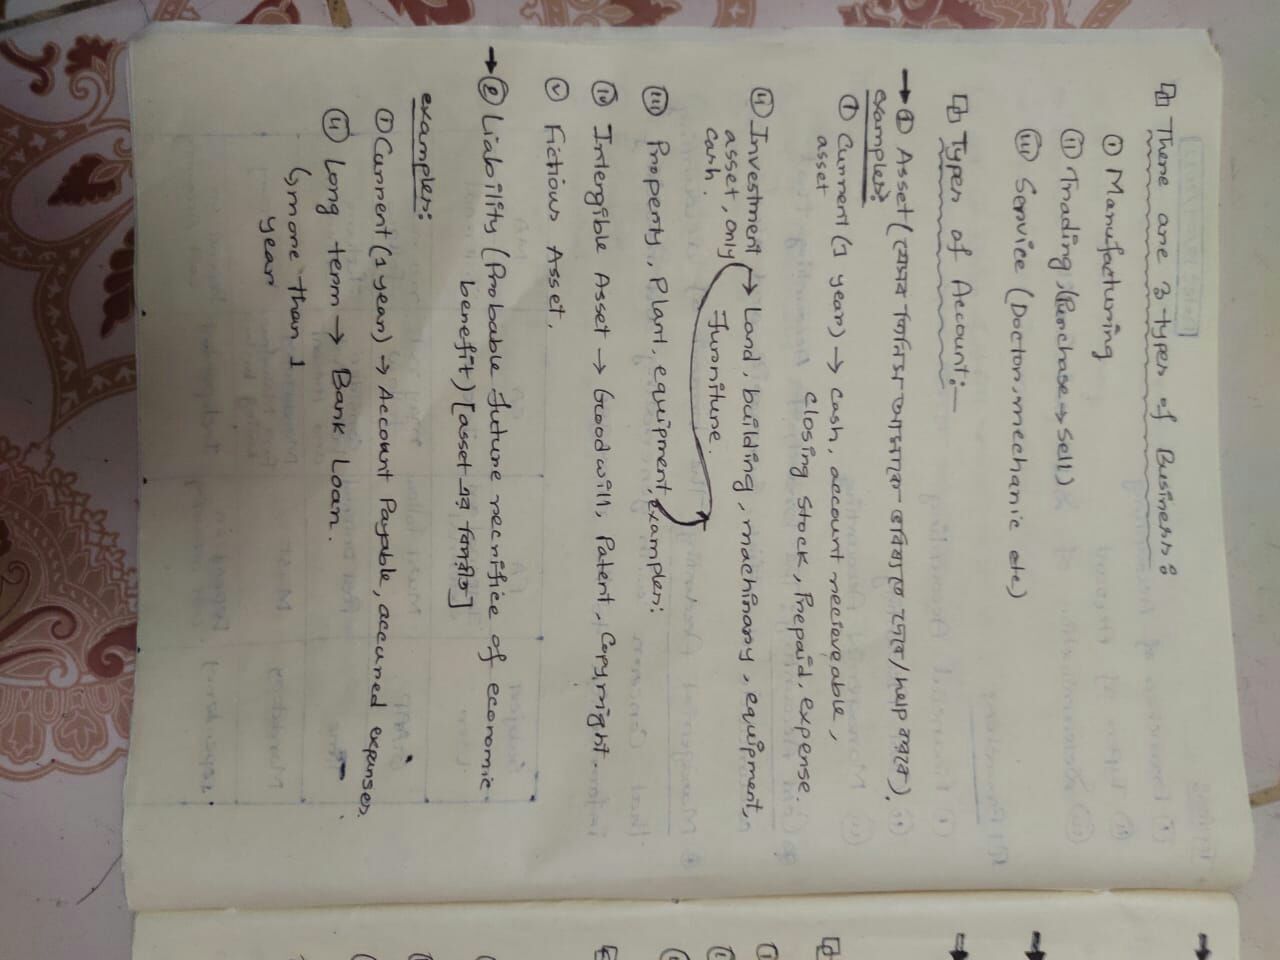 There are 3 types of Business:
(i) Manufacturing
(ii) Trading, (Purchase → Sell)
(iii) Service (Doctor, mechanic etc)
Types of Account:—
→ (1) Asset (যেসব জিনিস আমাকে ভবিষ্যতে দেবে / help করবে).
examples:
(i) Current (1 year) → cash, account recieveable,
asset closing stock, Prepaid. expense.
(ii) Investment → Land, building, machinary, equipment,
asset, only Furniture.
cash.
(iii) Property, Plant, equipment, examples:
(iv) Intergible Asset → Good will, Patent, Copyright.
(v) Fictious Asset.
→ (2) Liability (Probable future recrifice of economic
benefit) [asset এর বিপরীত]
examples:
(i) Current (1 year) → Account Payable, accured expenses.
(ii) Long term → Bank Loan.
↳ more than 1
year